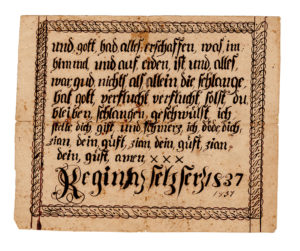 und gott had alles erschaffen, was im
himmel und auf erden, ist und alles
war gud nichts als allein die schlange
hat gott verflucht verflucht solst du
bleiben schlangen, geschwülst ich
stelle dich gift und schmerz ich död dich,
zian, dein güft, zian dein, güft, zian
dein, güft, amen, x x x
selzser 1837
1837